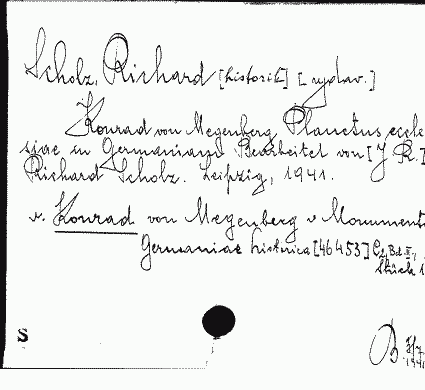 Scholz, Richard [historik] [wydav.]
Konrad von Megenberg Planctus eccle
siae in Germaniam Bearbeitet von [J R.]
Richard Scholz. Leipzig, 1941.
v. Konrad von Megenberg v Monument
Germaniae historica [46453] C2, Bd. II,
Stück 1
S
B.